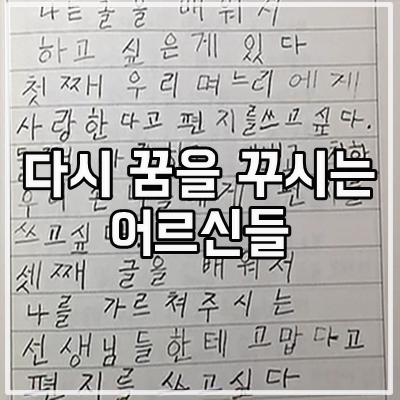 나는글을 배워서
하고 싶은게 있다
첫째 우리며느리에게
사랑한다고 편지를쓰고싶다.
다시 꿈을 꾸시는
어르신들
쓰고싶
셋째 글을 배워서
나를 가르쳐주시는
선생님들한테 고맙다고
편지를 쓰고싶다